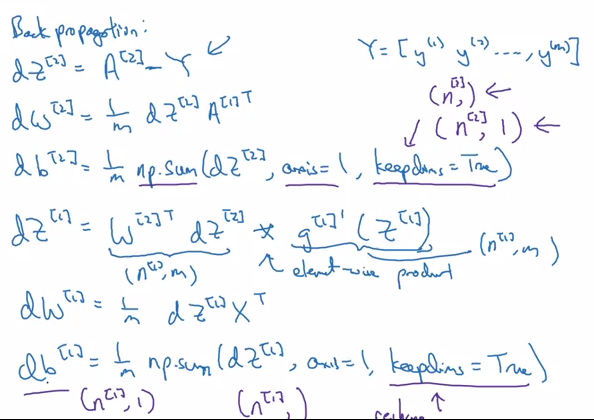 Back propagation:
dZ^[2] = A^[2] - Y ↙
Y = [y^(1) y^(2) ..., y^(m)]
dW^[2] = 1/m dZ^[2] A^[1]T
(n^[2],) ←
(n^[2], 1) ←
db^[2] = 1/m np.sum(dZ^[2], axis=1, keepdims=True)
dZ^[1] = W^[2]T dZ^[2] * g^[1]'(Z^[1])
(n^[1], m) ↖ element-wise product (n^[1], m)
dW^[1] = 1/m dZ^[1] X^T
db^[1] = 1/m np.sum(dZ^[1], axis=1, keepdims=True)
(n^[1], 1) (n^[1],) ↑